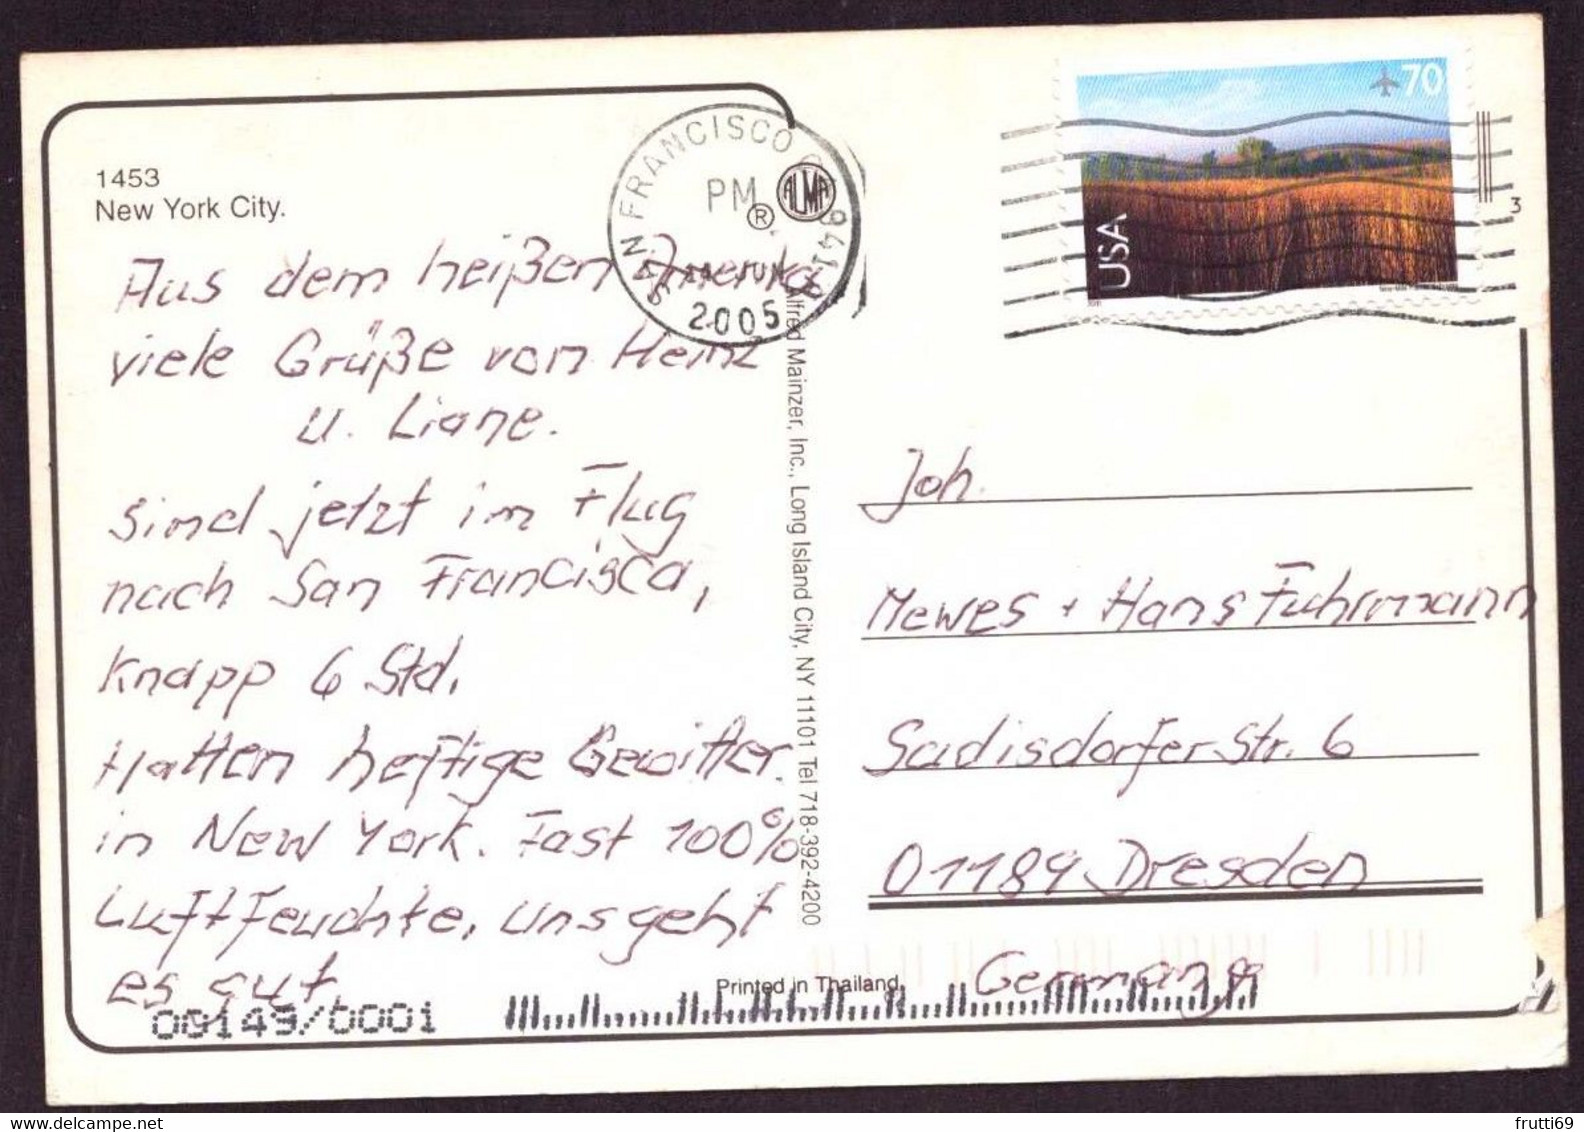 1453
New York City.
Aus dem heißen Amerika
viele Grüße von Heinz
u. Liane.
sind jetzt im Flug
nach San Francisca,
knapp 6 Std.
Hatten heftige Gewitter
in New York. Fast 100%
Luftfeuchte, uns geht
es gut
00149/0001
SAN FRANCISCO CA 941
PM
JUN
2005
®
ALMA
Alfred Mainzer, Inc., Long Island City, NY 11101 Tel 718-392-4200
Printed in Thailand.
70
USA
3
Joh.
Mewes + Hans Fuhrmann
Sadisdorfer Str. 6
01189 Dresden
Germany
www.delcampe.net
frutti69